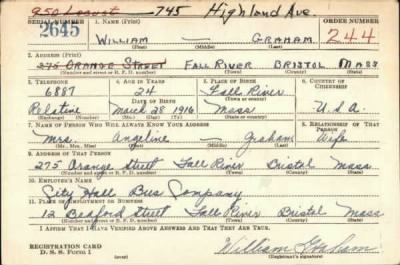 950 Locust 745 Highland Ave.
SERIAL NUMBER 1. NAME (Print) ORDER NUMBER
2645 WILLIAM — GRAHAM 244
(First) (Middle) (Last)
2. ADDRESS (Print)
275 ORANGE STREET FALL RIVER BRISTOL MASS
(Number and street or R. F. D. number) (Town) (County) (State)
3. TELEPHONE 4. AGE IN YEARS 5. PLACE OF BIRTH 6. COUNTRY OF CITIZENSHIP
6887 24 Fall River
DATE OF BIRTH (Town or county)
Relative March 28 1916 Mass U.S.A.
(Exchange) (Number) (Mo.) (Day) (Yr.) (State or country)
7. NAME OF PERSON WHO WILL ALWAYS KNOW YOUR ADDRESS 8. RELATIONSHIP OF THAT PERSON
Mrs. Angeline — Graham Wife
(Mr., Mrs., Miss) (First) (Middle) (Last)
9. ADDRESS OF THAT PERSON
275 Orange Street Fall River Bristol Mass
(Number and street or R. F. D. number) (Town) (County) (State)
10. EMPLOYER'S NAME
City Hall Bus Company
11. PLACE OF EMPLOYMENT OR BUSINESS
12 Bedford Street Fall River Bristol Mass
(Number and street or R. F. D. number) (Town) (County) (State)
I AFFIRM THAT I HAVE VERIFIED ABOVE ANSWERS AND THAT THEY ARE TRUE.
REGISTRATION CARD William Graham
D. S. S. Form 1 (over) (Registrant's signature)